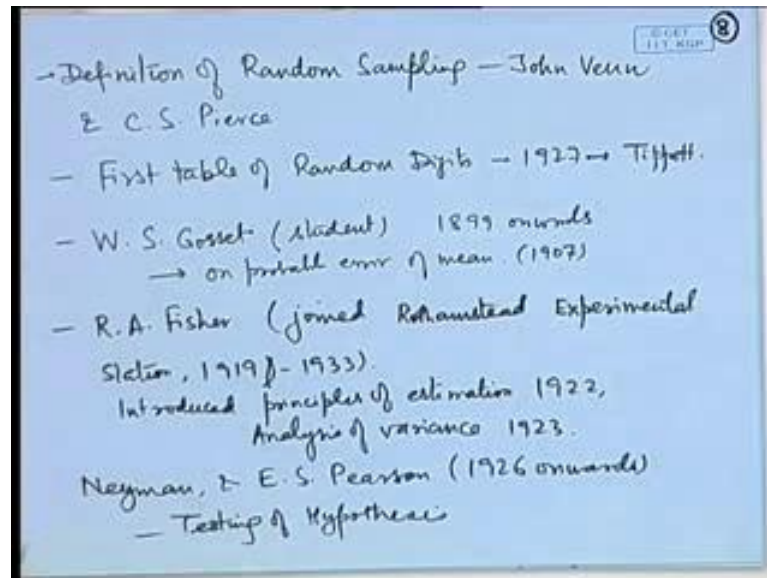 © CET
I.I.T. KGP
8
→ Definition of Random Sampling – John Venn
& C.S. Pierce
– First table of Random Digits – 1927 → Tippett.
– W. S. Gosset (student) 1899 onwards
→ on probable error of mean (1907)
– R.A. Fisher (joined Rothamstead Experimental
Station, 1919 – 1933).
Introduced principles of estimation 1922,
Analysis of variance 1923.
Neyman, & E.S. Pearson (1926 onwards)
– Testing of Hypothesis